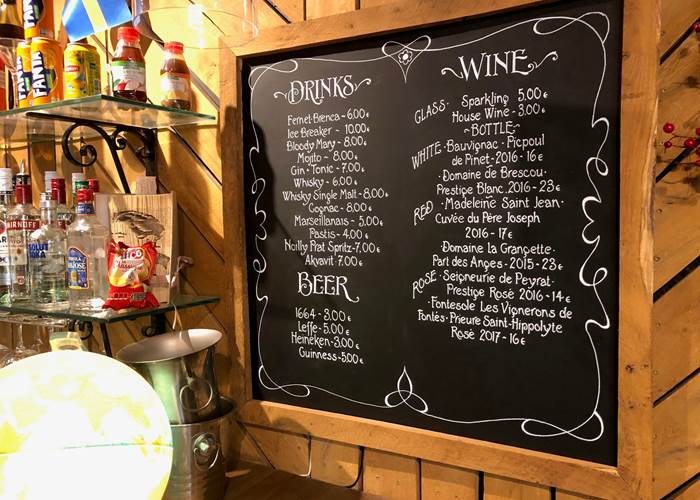 FANTA
FANTA
SMIRNOFF
ABSOLUT
JOSÉ
DRINKS
Fernet-Branca - 6.00€
Ice Breaker - 10.00€
Bloody Mary - 8.00€
Mojito - 8.00€
Gin - Tonic - 7.00€
Whisky - 6.00€
Whisky Single Malt - 8.00€
Cognac - 8.00€
Marseillanais - 5.00€
Pastis - 4.00€
Noilly Prat Spritz - 7.00€
Akvavit - 7.00€
BEER
1664 - 3.00€
Leffe - 5.00€
Heineken - 3.00€
Guinness - 5.00€
WINE
GLASS · Sparkling 5.00€
House Wine - 3.00€
~ BOTTLE ~
WHITE · Bauvignac · Picpoul
de Pinet · 2016 - 16€
· Domaine de Brescou ·
Prestige Blanc · 2016 - 23€
RED · Madeleine Saint Jean ·
Cuvée du Père Joseph
· 2016 - 17€
· Domaine la Grangette ·
Part des Anges · 2015 - 23€
ROSE · Seigneurie de Peyrat ·
Prestige Rosè 2016 - 14€
· Fontesole Les Vignerons de
Fontés · Prieure Saint-Hippolyte
Rosè 2017 - 16€